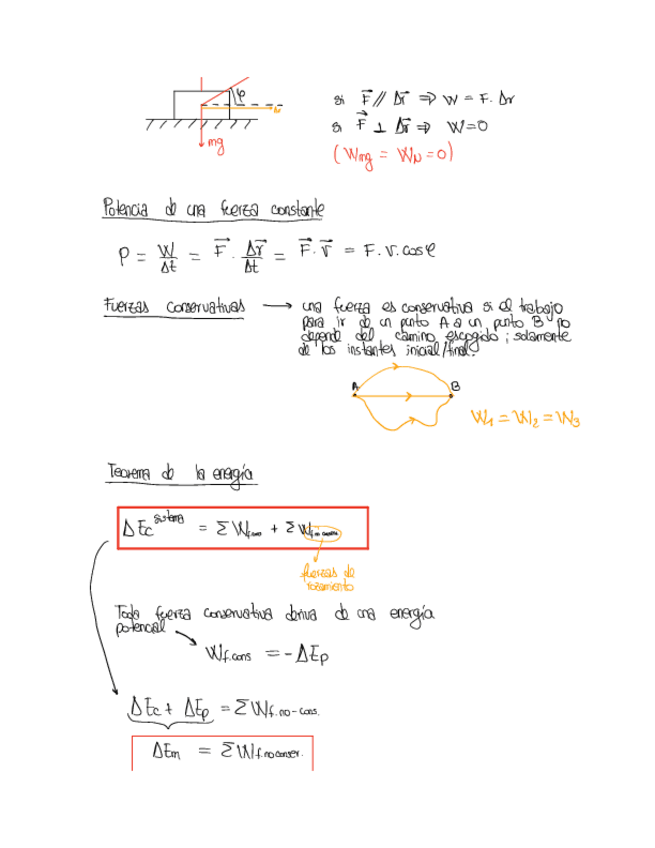 φ
Δr
mg
si F⃗ // Δr⃗ ⇒ W = F. Δr
si F⃗ ⊥ Δr⃗ ⇒ W=0
(Wmg = WN = 0)
Potencia de una fuerza constante
P = W/Δt = F⃗ . Δr⃗/Δt = F⃗ . v⃗ = F. v. cosφ
Fuerzas conservativas → una fuerza es conservativa si el trabajo
para ir de un punto A a un punto B no
depende del camino escogido ; solamente
de los instantes inicial/final.
A B
W1 = W2 = W3
Teorema de la energía
ΔEc sistema = ΣWf.cons + ΣWf.no conserv.
fuerzas de
rozamiento
Toda fuerza conservativa deriva de una energía
potencial
Wf.cons = -ΔEp
ΔEc + ΔEp = ΣWf.no-cons.
ΔEm = ΣWf.noconser.